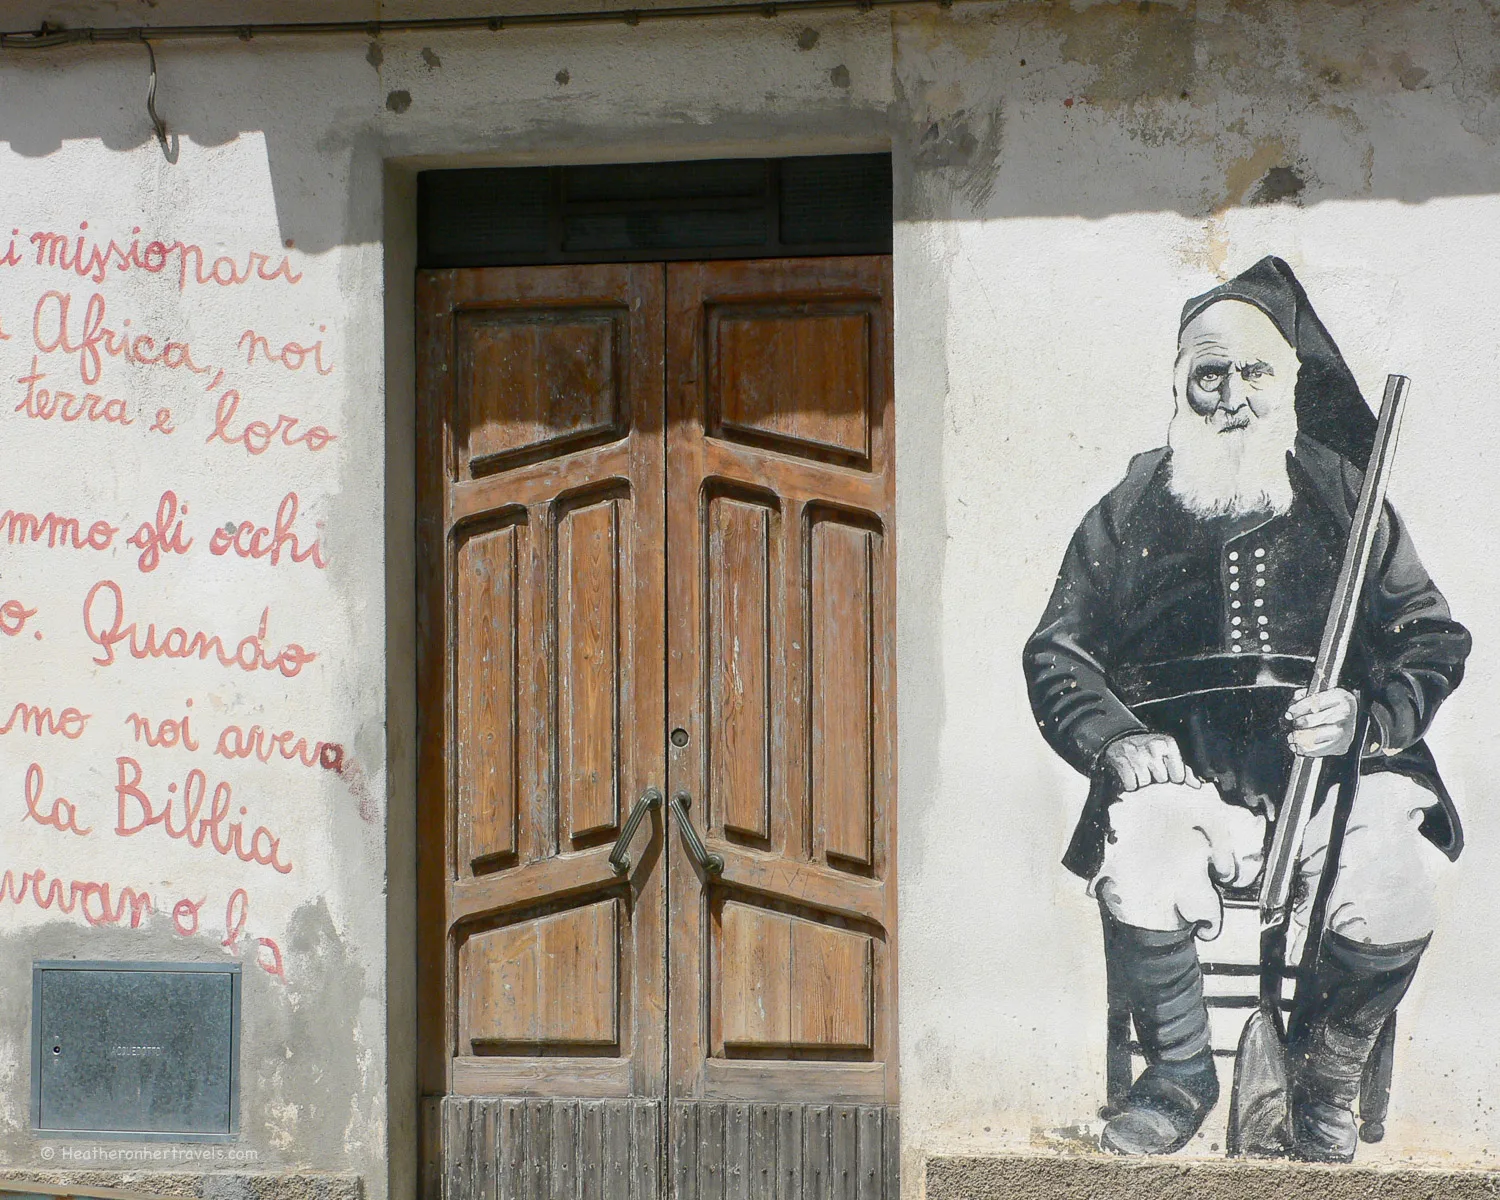 i missionari
Africa, noi
terra e loro
mmo gli occhi
o. Quando
mmo noi avevamo
la Bibbia
avevano la
ACQUEDOTTO
© Heatheronhertravels.com